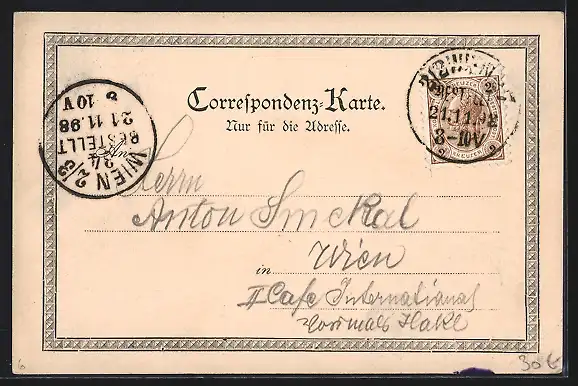 Correspondenz-Karte.
Nur für die Adresse.
2
21.11.98
8-10V
KREUZER
WIEN 2/3
34
BESTELLT
21.11.98
10V
An
Herrn
Anton Smekal
Wien
in
II Cafe International
vormals Hakl
30
6